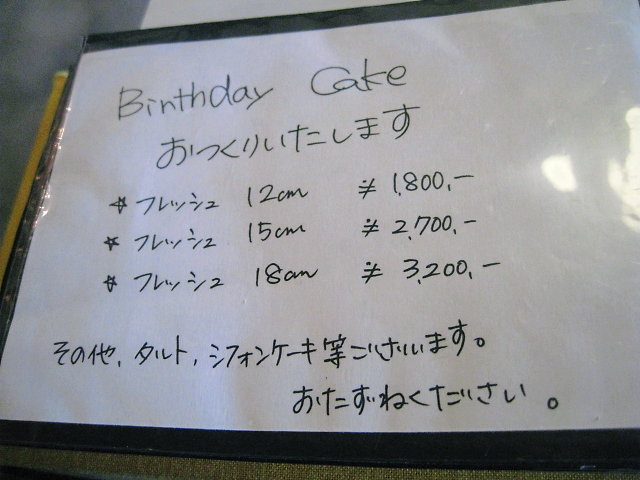 Birthday Cake
おつくりいたします
☆ フレッシュ 12cm ¥ 1,800,-
☆ フレッシュ 15cm ¥ 2,700,-
☆ フレッシュ 18cm ¥ 3,200,-
その他、タルト、シフォンケーキ等ございます。
おたずねください。